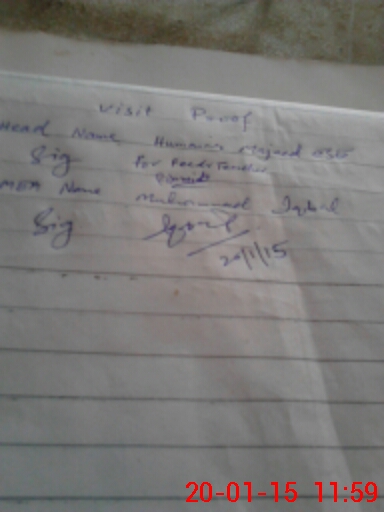 Visit Proof
Head Name Humaira Majeed
Sig For Heads Teacher
MEA Name Muhammad Iqbal
Sig Iqbal
20/1/15
20-01-15 11:59